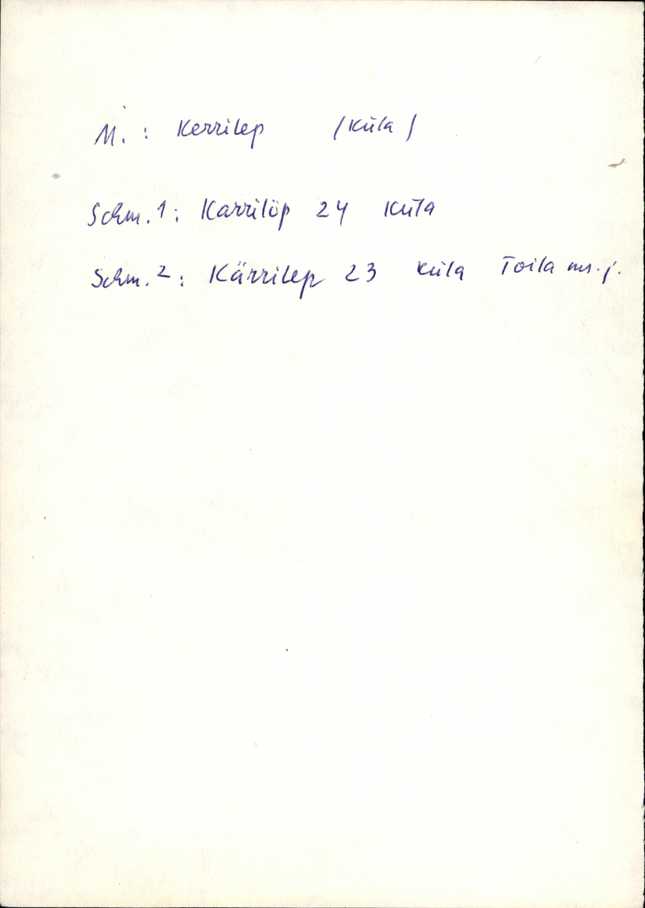 M. : Kerrilep (küla)
Schm. 1 : Karrilöp 24 küla
Schm. 2 : Kärrilep 23 küla Toila ms. j.